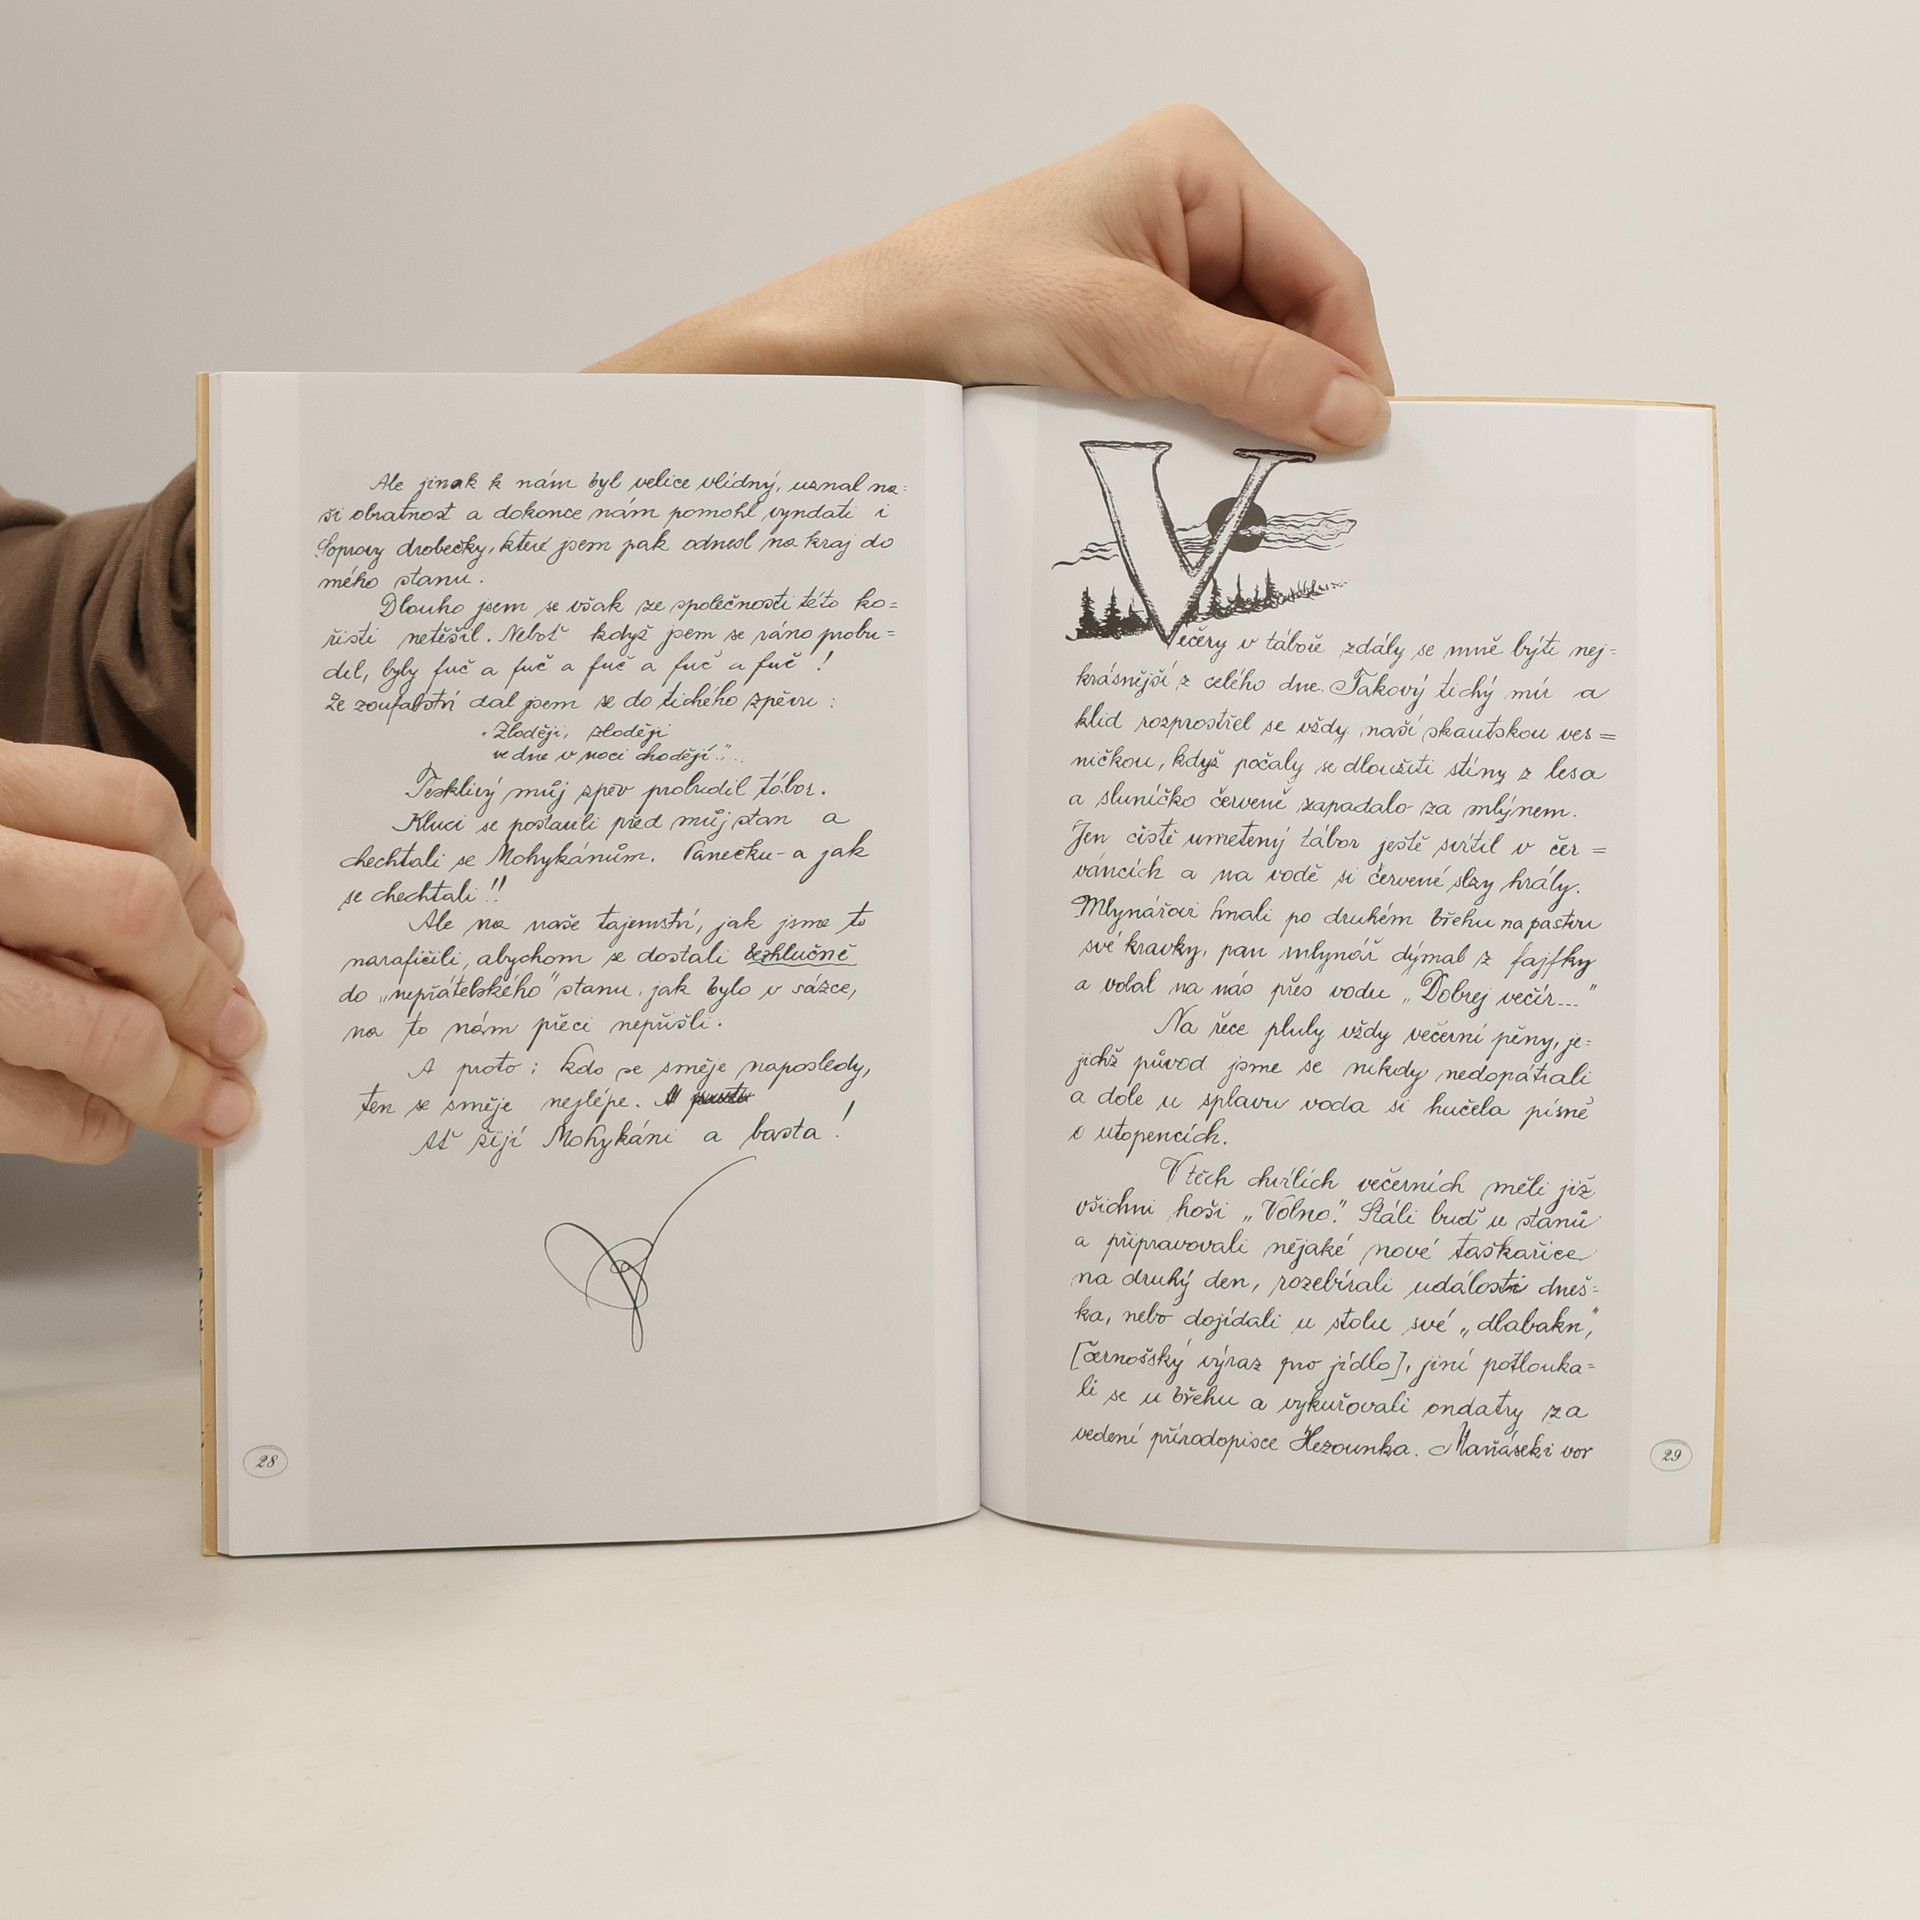 Ale jinak k nám byl velice vlídný, uznal na=
ši obratnost a dokonce nám pomohl vyndati i
Soprovy drobečky, které jsem pak odnesl na kraj do
mého stanu.
Dlouho jsem se však ze společnosti této ko=
řisti netěšil. Neboť když jsem se ráno probu=
dil, byly fuč a fuč a fuč a fuč a fuč!
Ze zoufalství dal jsem se do tichého zpěvu:
„Zloději, zloději
ve dne v noci chodějí"...
Tesklivý můj zpěv probudil tábor.
Kluci se postavili před můj stan a
chechtali se Mohykánům. Panečku - a jak
se chechtali!!
Ale na naše tajemství, jak jsme to
narafičili, abychom se dostali bezhlučně
do „nepřátelského" stanu, jak bylo v sázce,
na to nám přeci nepřišli.
A proto: kdo se směje naposledy,
ten se směje nejlépe.
Ať žijí Mohykáni a basta!
28
Večery v táboře zdály se mně býti nej=
krásnější z celého dne. Takový tichý mír a
klid rozprostřel se vždy naší skautskou ves=
ničkou, když počaly se dloužiti stíny z lesa
a sluníčko červeně zapadalo za mlýnem.
Jen čistě umetený tábor ještě svítil v čer=
váncích a na vodě si červené slzy hrály.
Mlynářovi hnali po druhém břehu na pastvu
své kravky, pan mlynář dýmal z fajfky
a volal na nás přes vodu „Dobrej večír..."
Na řece pluly vždy večerní pěny, je=
jichž původ jsme se nikdy nedopátrali
a dole u splavu voda si hučela písně
o utopencích.
V těch chvílích večerních měli již
všichni hoši „Volno". Stáli buď u stanů
a připravovali nějaké nové taškařice
na druhý den, rozebírali události dneš=
ka, nebo dojídali u stolu své „dlabakn",
[černošský výraz pro jídlo], jiní potlouka=
li se u břehu a vykuřovali ondatry za
vedení přírodopisce Hezounka. Maňáskův vor
29